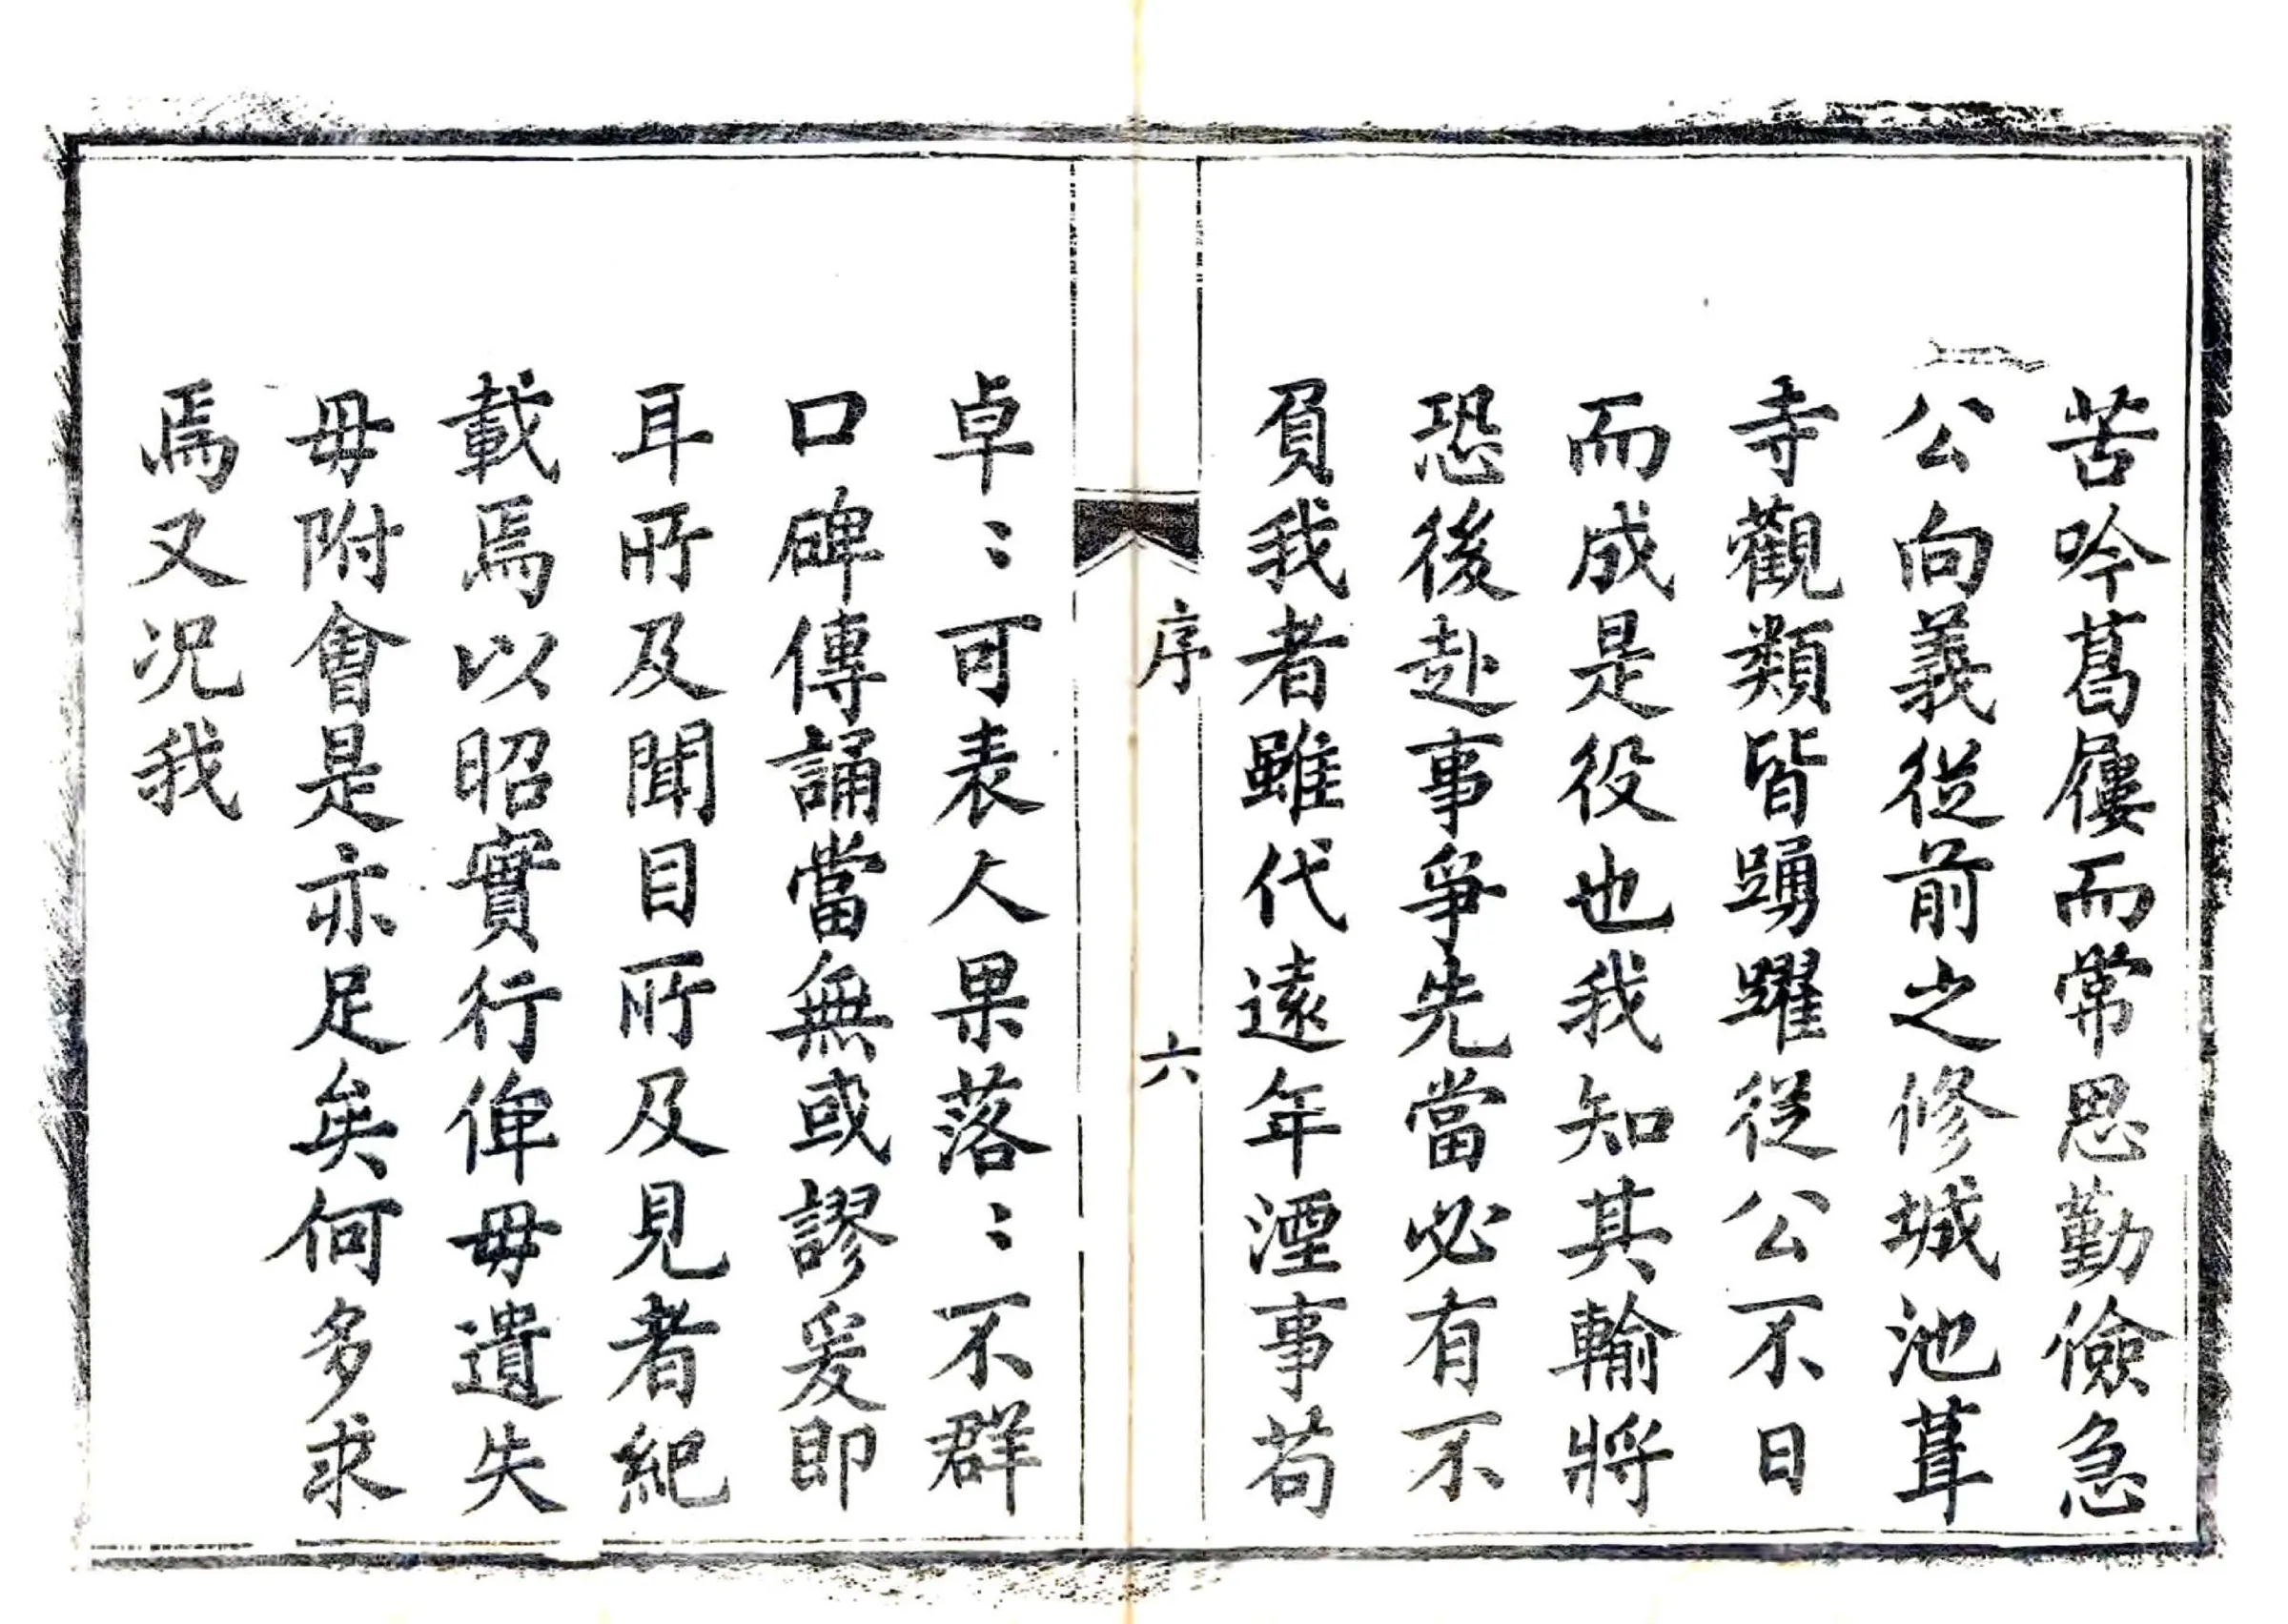 苦吟葛屨而常思勤儉急
公向義從前之修城池葺
寺觀類皆踴躍從公不日
而成是役也我知其輸將
恐後赴事爭先當必有不
負我者雖代遠年湮事苟
序
六
卓〻可表人果落〻不群
口碑傳誦當無或謬爰即
耳所及聞目所及見者紀
載焉以昭實行俾毋遺失
毋附會是亦足矣何多求
焉又況我